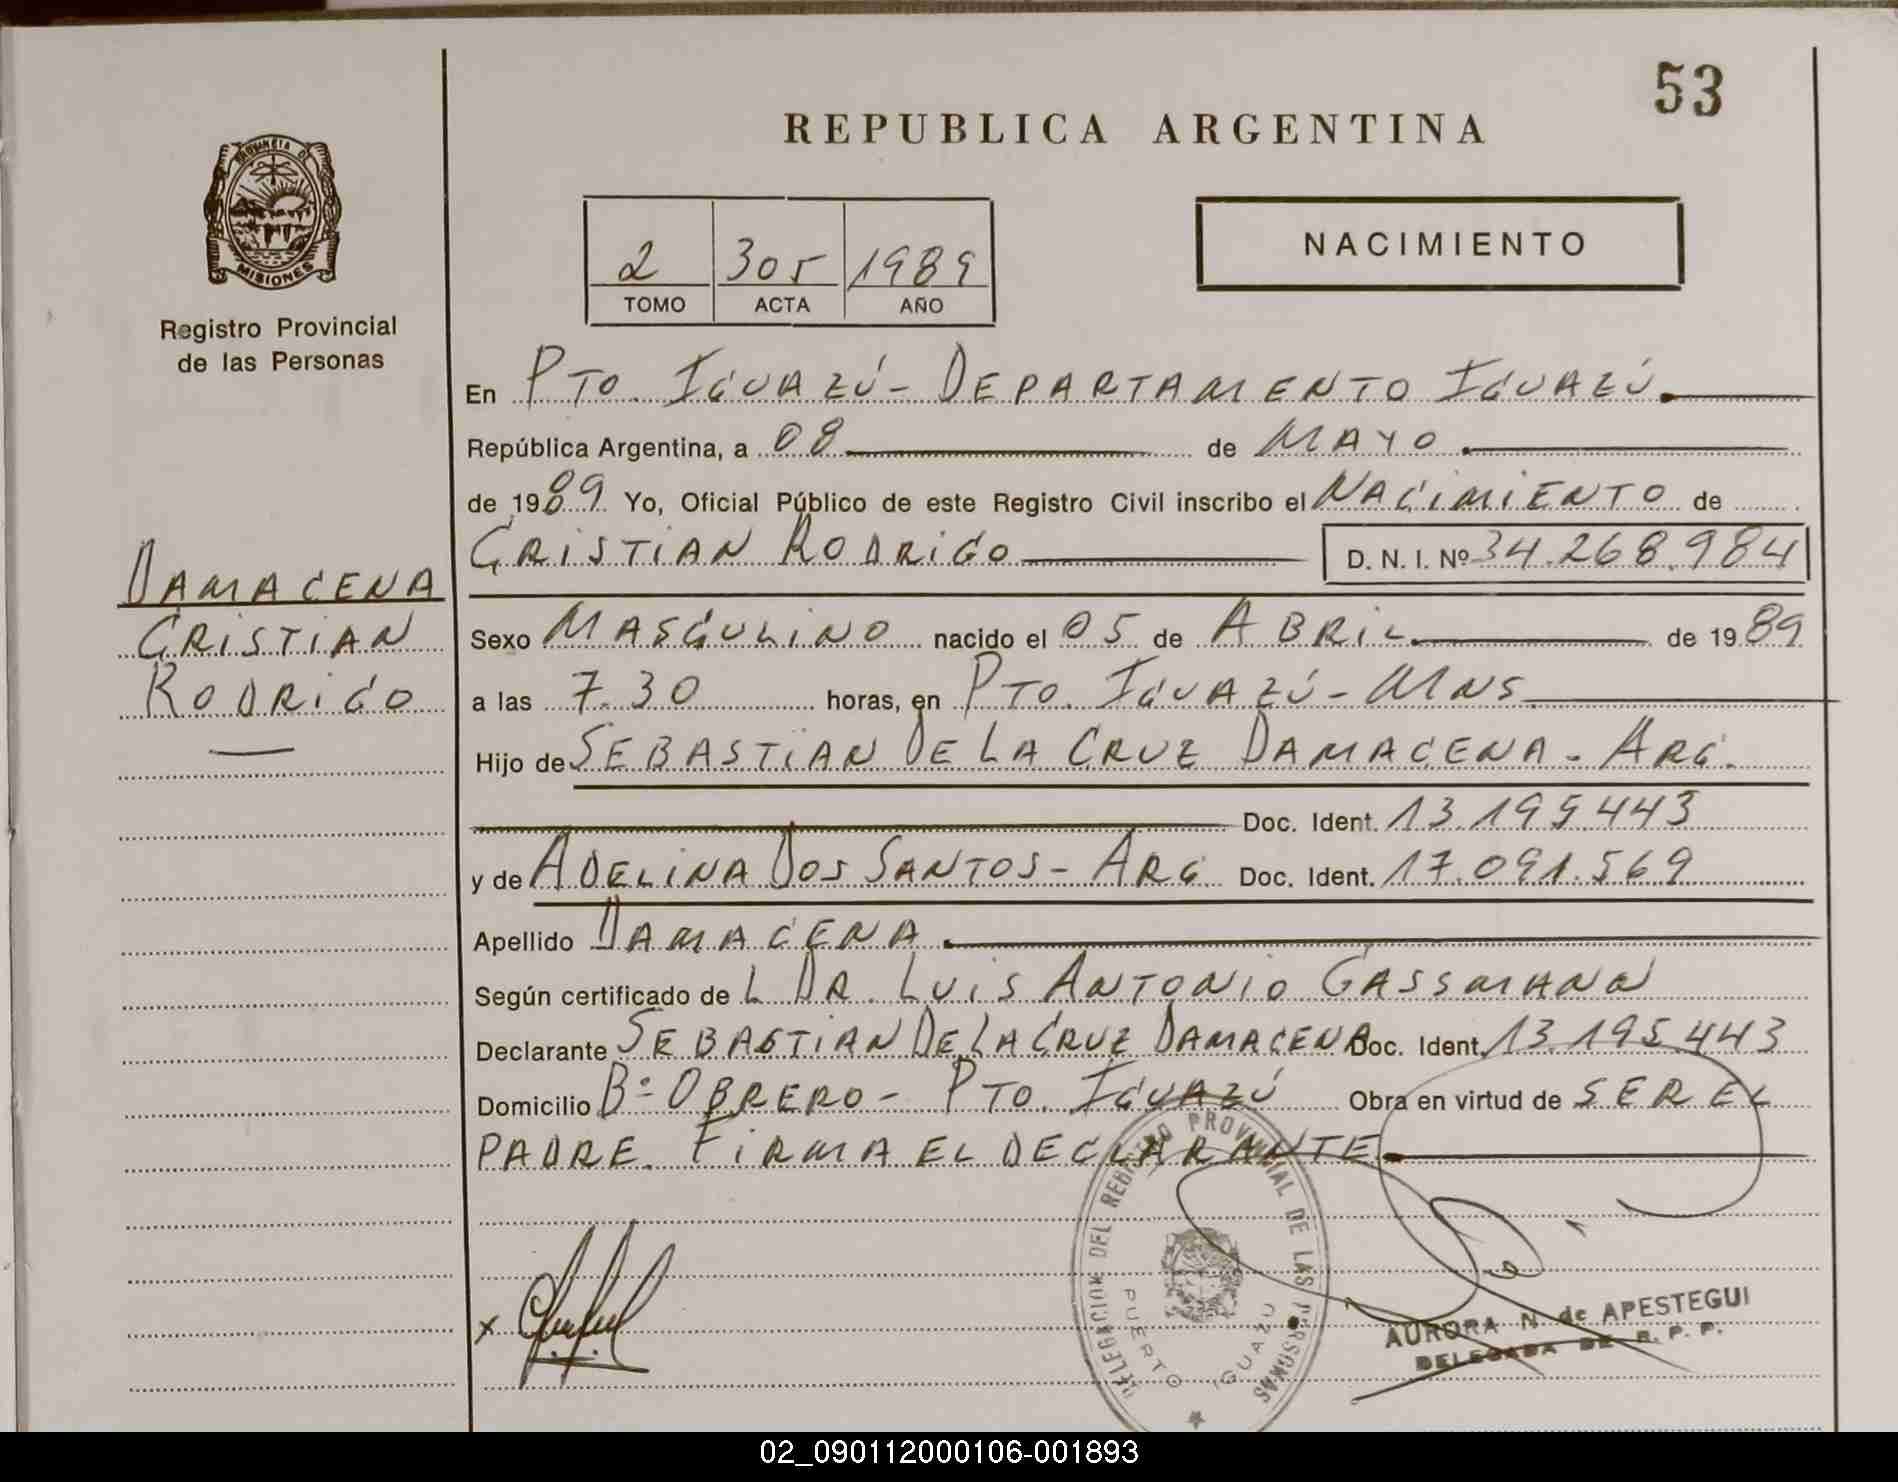 53
REPUBLICA ARGENTINA
PROVINCIA DE
MISIONES
Registro Provincial
de las Personas
2 305 1989
TOMO ACTA AÑO
NACIMIENTO
En PTO. IGUAZÚ - DEPARTAMENTO IGUAZÚ.
República Argentina, a 08 de MAYO
de 1989 Yo, Oficial Público de este Registro Civil inscribo el NACIMIENTO de
CRISTIAN RODRIGO D. N. I. Nº 34.268.984
DAMACENA
CRISTIAN
RODRIGO
Sexo MASCULINO nacido el 05 de ABRIL de 1989
a las 7.30 horas, en PTO. IGUAZÚ - MNS
Hijo de SEBASTIAN DE LA CRUZ DAMACENA - ARG.
Doc. Ident. 13.195.443
y de ADELINA DOS SANTOS - ARG Doc. Ident. 17.091.569
Apellido DAMACENA
Según certificado de L DR. LUIS ANTONIO GASSMANN
Declarante SEBASTIAN DE LA CRUZ DAMACENA Doc. Ident. 13.195.443
Domicilio Bº OBRERO - PTO. IGUAZÚ Obra en virtud de SER EL
PADRE. FIRMA EL DECLARANTE
DELEGACION DEL REGISTRO PROVINCIAL DE LAS PERSONAS
PUERTO IGUAZU
x
AURORA N. de APESTEGUI
DELEGADA DE R. P. P.
02_090112000106-001893